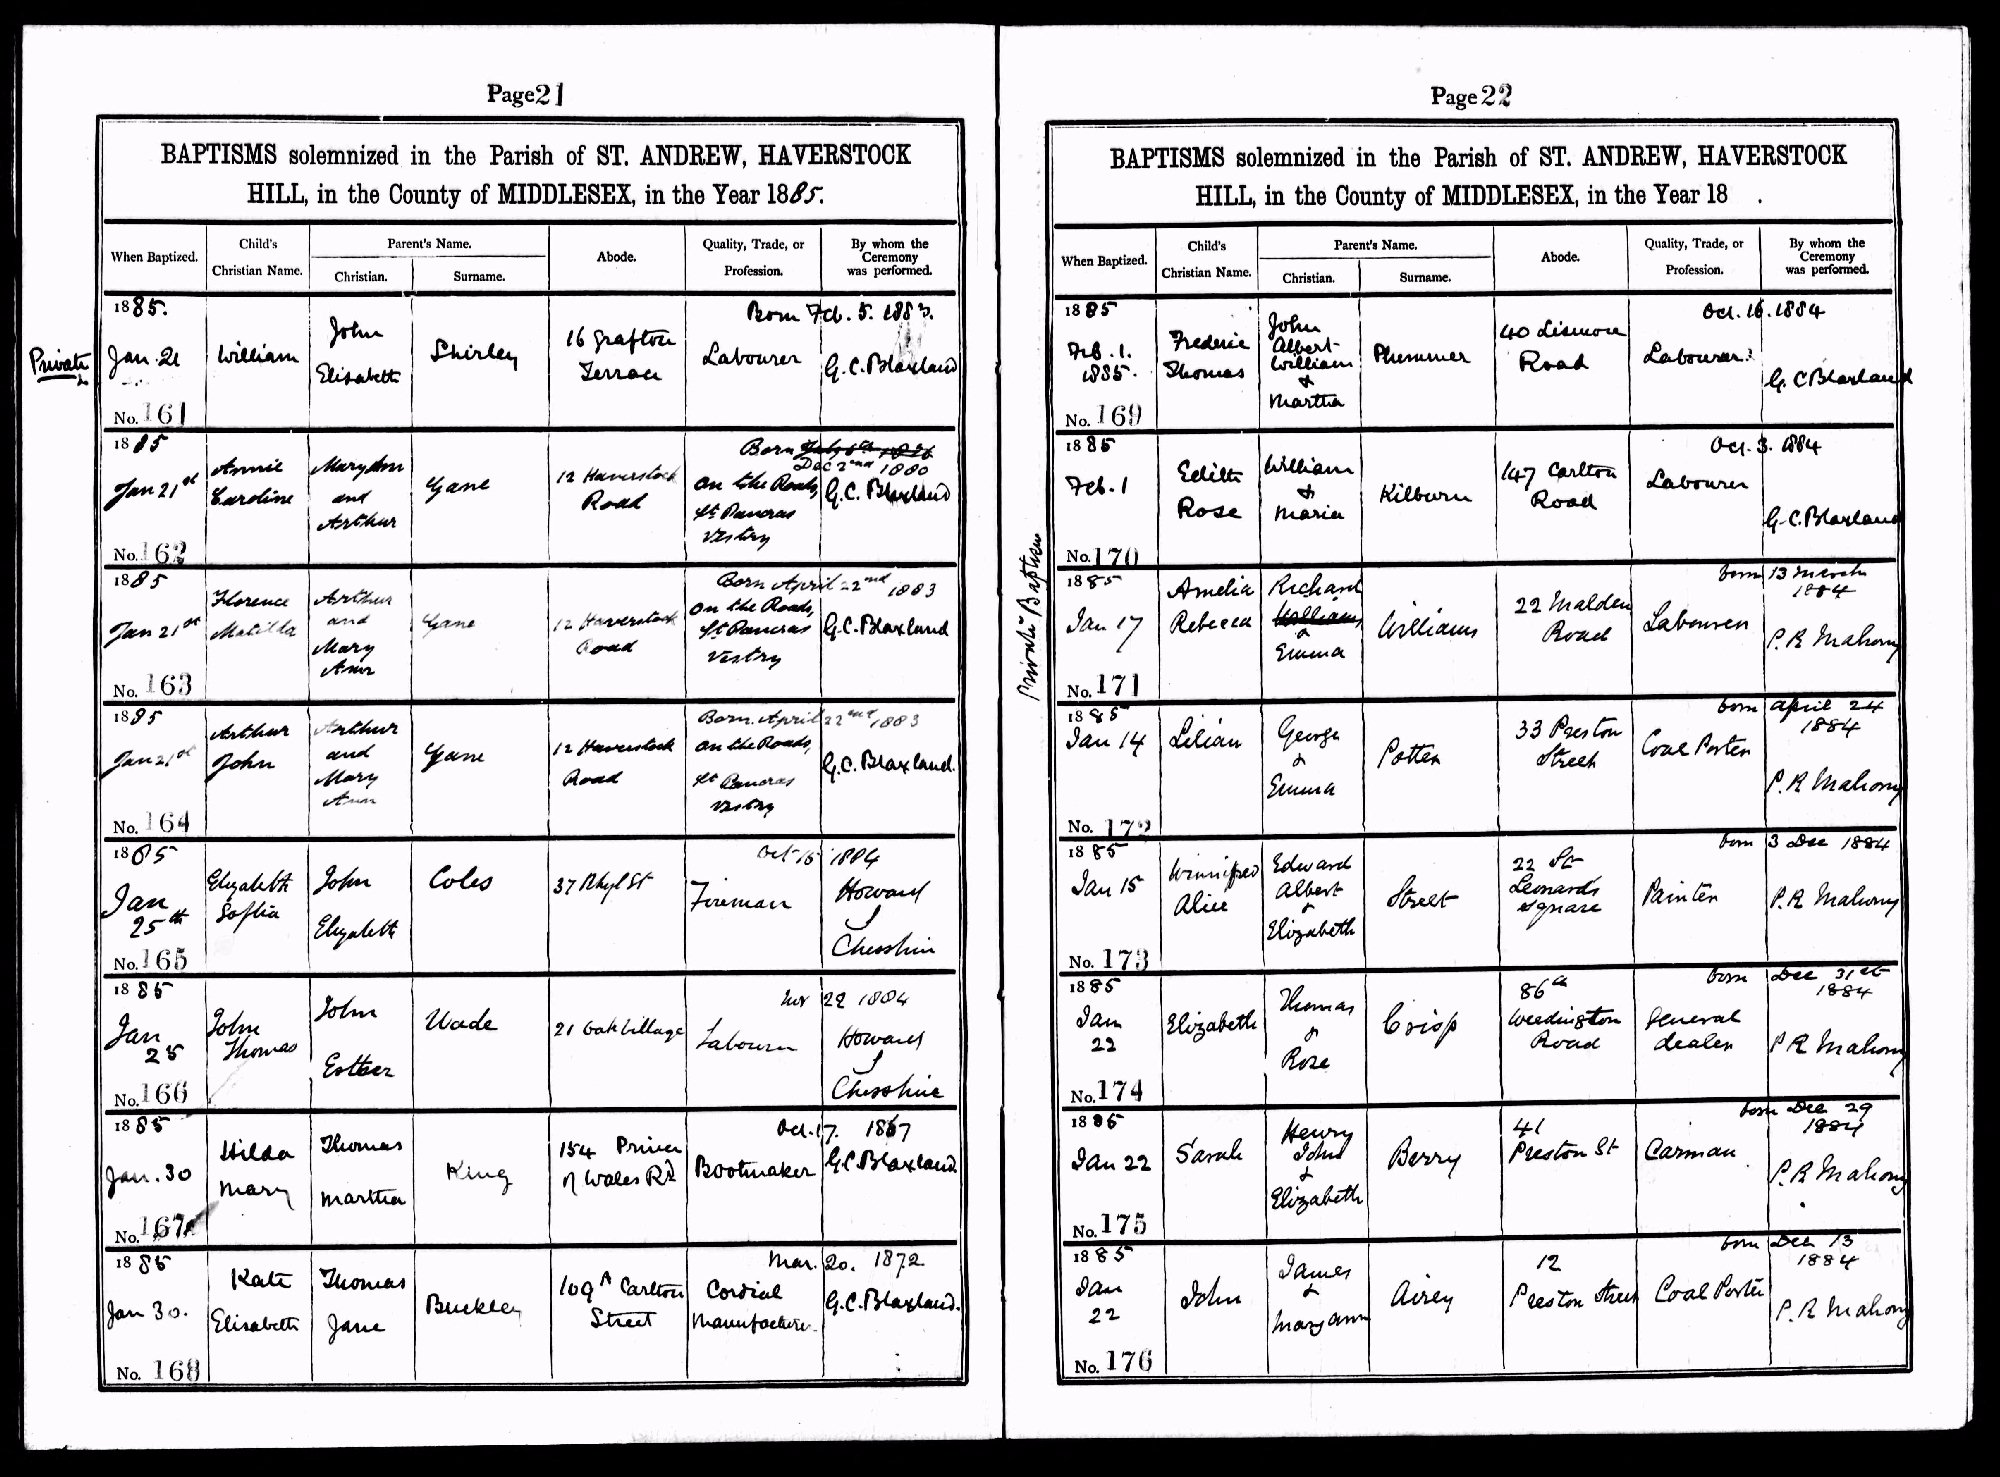 Page 21
BAPTISMS solemnized in the Parish of ST. ANDREW, HAVERSTOCK
HILL, in the County of MIDDLESEX, in the Year 1885.
When Baptized.
Child's
Christian Name.
Parent's Name.
Christian.
Surname.
Abode.
Quality, Trade, or
Profession.
By whom the
Ceremony
was performed.
Private
1885.
Jan. 21
No. 161
William
John
Elisabeth
Shirley
16 Grafton
Terrace
Born Feb. 5. 1883.
Labourer
G. C. Blaxland
1885
Jan 21st
No. 162
Annie
Caroline
Mary Ann
and
Arthur
Gane
12 Haverstock
Road
Born
Dec 2nd 1880
on the Roads,
St Pancras
Vestry
G. C. Blaxland
1885
Jan 21st
No. 163
Florence
Matilda
Arthur
and
Mary
Ann
Gane
12 Haverstock
Road
Born April 22nd 1883
on the Roads,
St Pancras
Vestry
G. C. Blaxland
1885
Jan 21st
No. 164
Arthur
John
Arthur
and
Mary
Ann
Gane
12 Haverstock
Road
Born April 22nd 1883
on the Roads,
St Pancras
Vestry
G. C. Blaxland.
1885
Jan
25th
No. 165
Elizabeth
Sophia
John
Elizabeth
Coles
37 Rhyl St
Oct 15 1884
Fireman
Howard
J
Chesshire
1885
Jan
25
No. 166
John
Thomas
John
Esther
Wade
21 Oak Village
Nov 22 1884
Labourer
Howard
J
Chesshire
1885
Jan. 30
No. 167
Hilda
Mary
Thomas
Martha
King
154 Prince
of Wales Rd
Oct. 17. 1867
Bootmaker
G. C. Blaxland.
1885
Jan 30.
No. 168
Kate
Elisabeth
Thomas
Jane
Buckley
109A Carlton
Street
Mar. 20. 1872
Cordial
Manufacturer
G. C. Blaxland.
Page 22
BAPTISMS solemnized in the Parish of ST. ANDREW, HAVERSTOCK
HILL, in the County of MIDDLESEX, in the Year 18 .
When Baptized.
Child's
Christian Name.
Parent's Name.
Christian.
Surname.
Abode.
Quality, Trade, or
Profession.
By whom the
Ceremony
was performed.
1885
Feb. 1.
1885.
No. 169
Frederic
Thomas
John
Albert
William
&
Martha
Plummer
40 Lismore
Road
Oct. 16. 1884
Labourer
G. C. Blaxland
1885
Feb. 1
No. 170
Edith
Rose
William
&
Maria
Kilburn
147 Carlton
Road
Oct. 3. 1884
Labourer
G. C. Blaxland
Private Baptism
1885
Jan 17
No. 171
Amelia
Rebecca
Richard
Williams
&
Emma
Williams
22 Malden
Road
born 13 March
1884
Labourer
P. R Mahony
1885
Jan 14
No. 172
Lilian
George
&
Emma
Potter
33 Preston
Street
born April 24
1884
Coal Porter
P. R Mahony
1885
Jan 15
No. 173
Winnifred
Alice
Edward
Albert
&
Elizabeth
Street
22 St
Leonards
Square
born 3 Dec 1884
Painter
P. R Mahony
1885
Jan
22
No. 174
Elizabeth
Thomas
&
Rose
Crisp
86a
Weedington
Road
born Dec 31st
1884
General
dealer
P R Mahony
1885
Jan 22
No. 175
Sarah
Henry
John
&
Elizabeth
Berry
41
Preston St
born Dec 29
1884
Carman
P. R Mahony
1885
Jan
22
No. 176
John
James
&
Mary Ann
Airey
12
Preston Street
born Dec 13
1884
Coal Porter
P. R Mahony